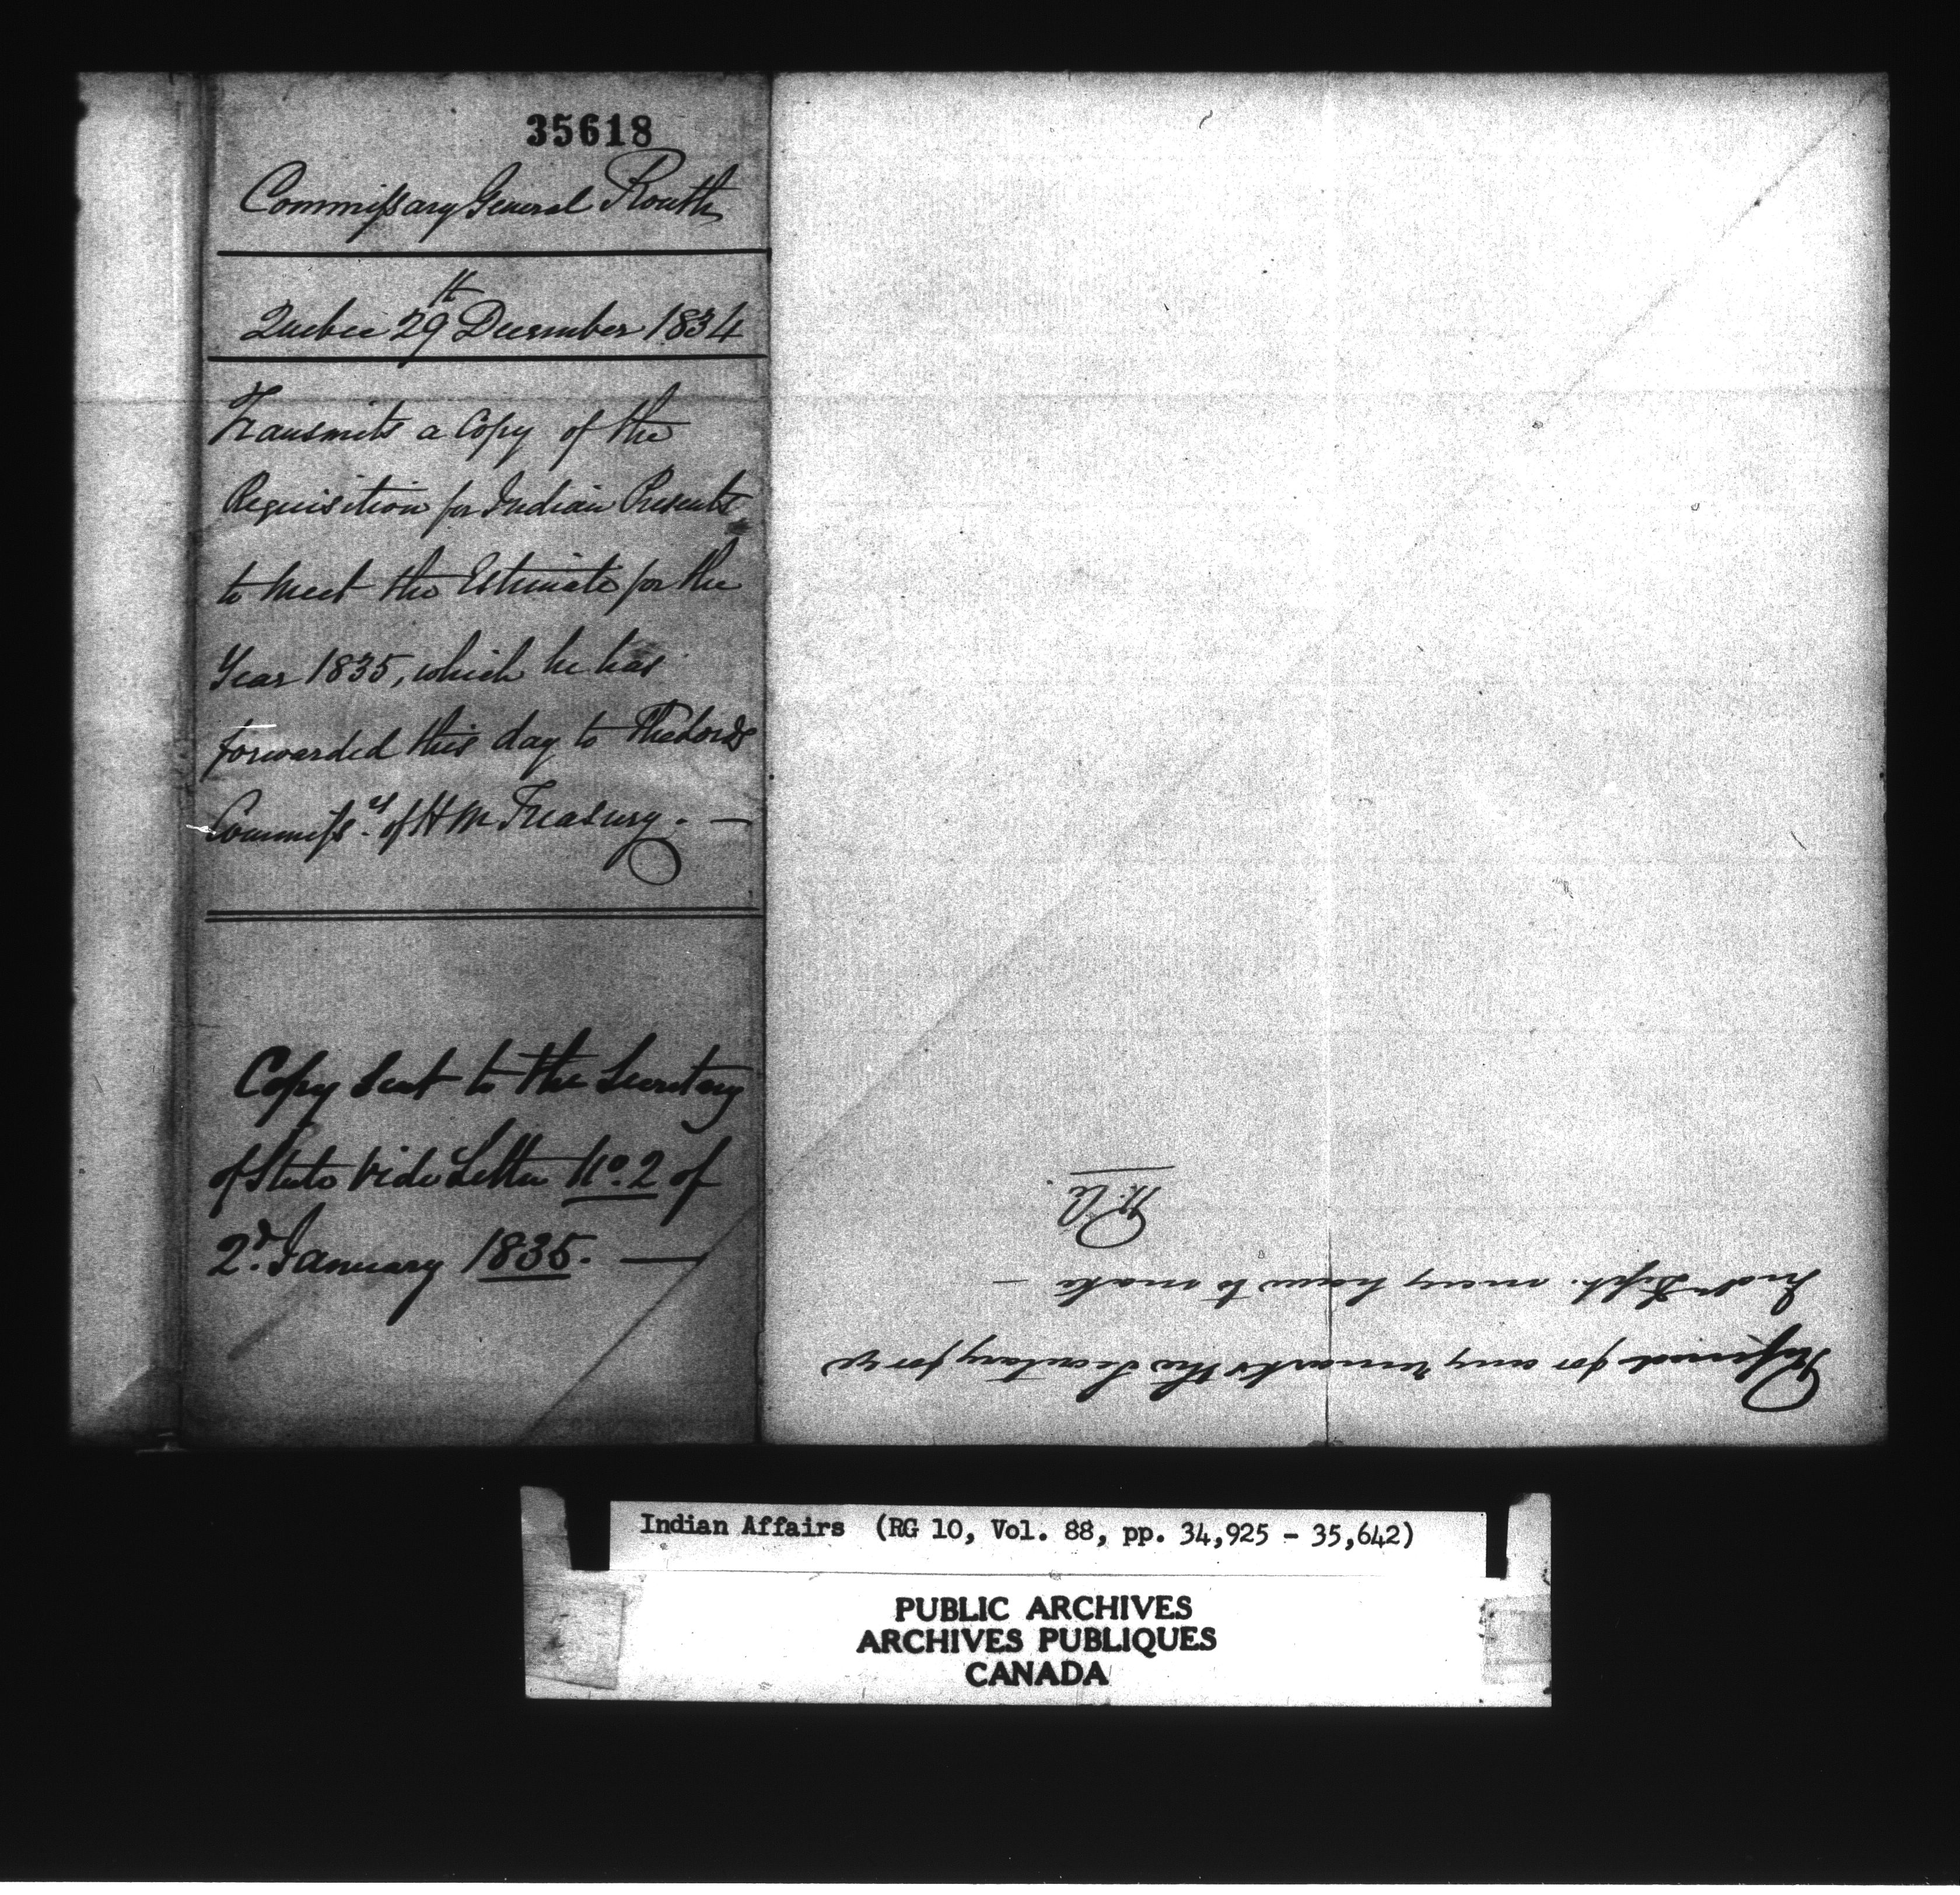 35618
Commissary General Routh
Quebec 29th December 1834
Transmits a Copy of the
Requisition for Indian Presents
to meet the Estimate for the
Year 1835, which he has
forwarded this day to The Lords
Commissrs. of H M Treasury. —
Copy sent to the Secretary
of State vide Letter No. 2 of
2d. January 1835. —
Referred for any remarks the Secretary for ye
Indn Dept. may have to make —
Indian Affairs (RG 10, Vol. 88, pp. 34,925 - 35,642)
PUBLIC ARCHIVES
ARCHIVES PUBLIQUES
CANADA